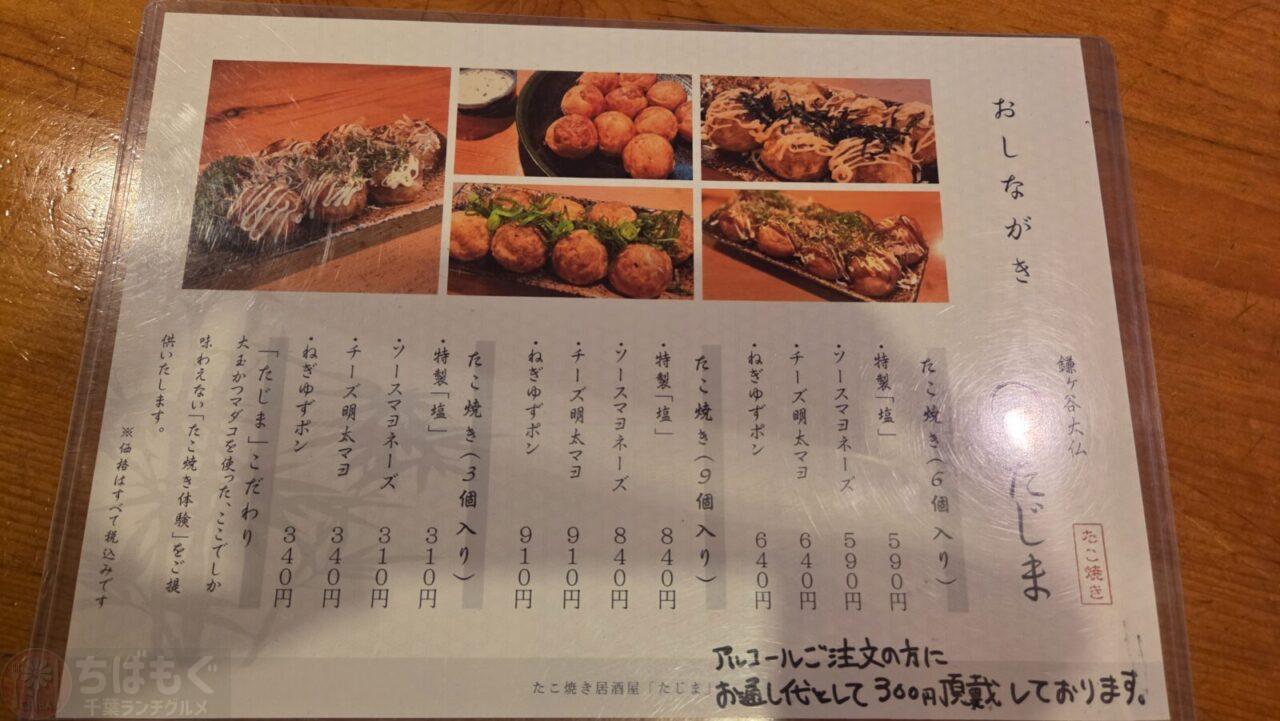 おしながき
鎌ヶ谷大仏
たじま
たこ焼き
たこ焼き(6個入り)
・特製「塩」 590円
・ソースマヨネーズ 590円
・チーズ明太マヨ 640円
・ねぎゆずポン 640円
たこ焼き(9個入り)
・特製「塩」 840円
・ソースマヨネーズ 840円
・チーズ明太マヨ 910円
・ねぎゆずポン 910円
たこ焼き(3個入り)
・特製「塩」 310円
・ソースマヨネーズ 310円
・チーズ明太マヨ 340円
・ねぎゆずポン 340円
「たじま」こだわり
大玉かつマダコを使った、ここでしか
味わえない「たこ焼き体験」をご提
供いたします。
※価格はすべて税込みです
たこ焼き居酒屋「たじま」
アルコールご注文の方に
お通し代として300円頂戴しております。
ちばもぐ
千葉ランチグルメ